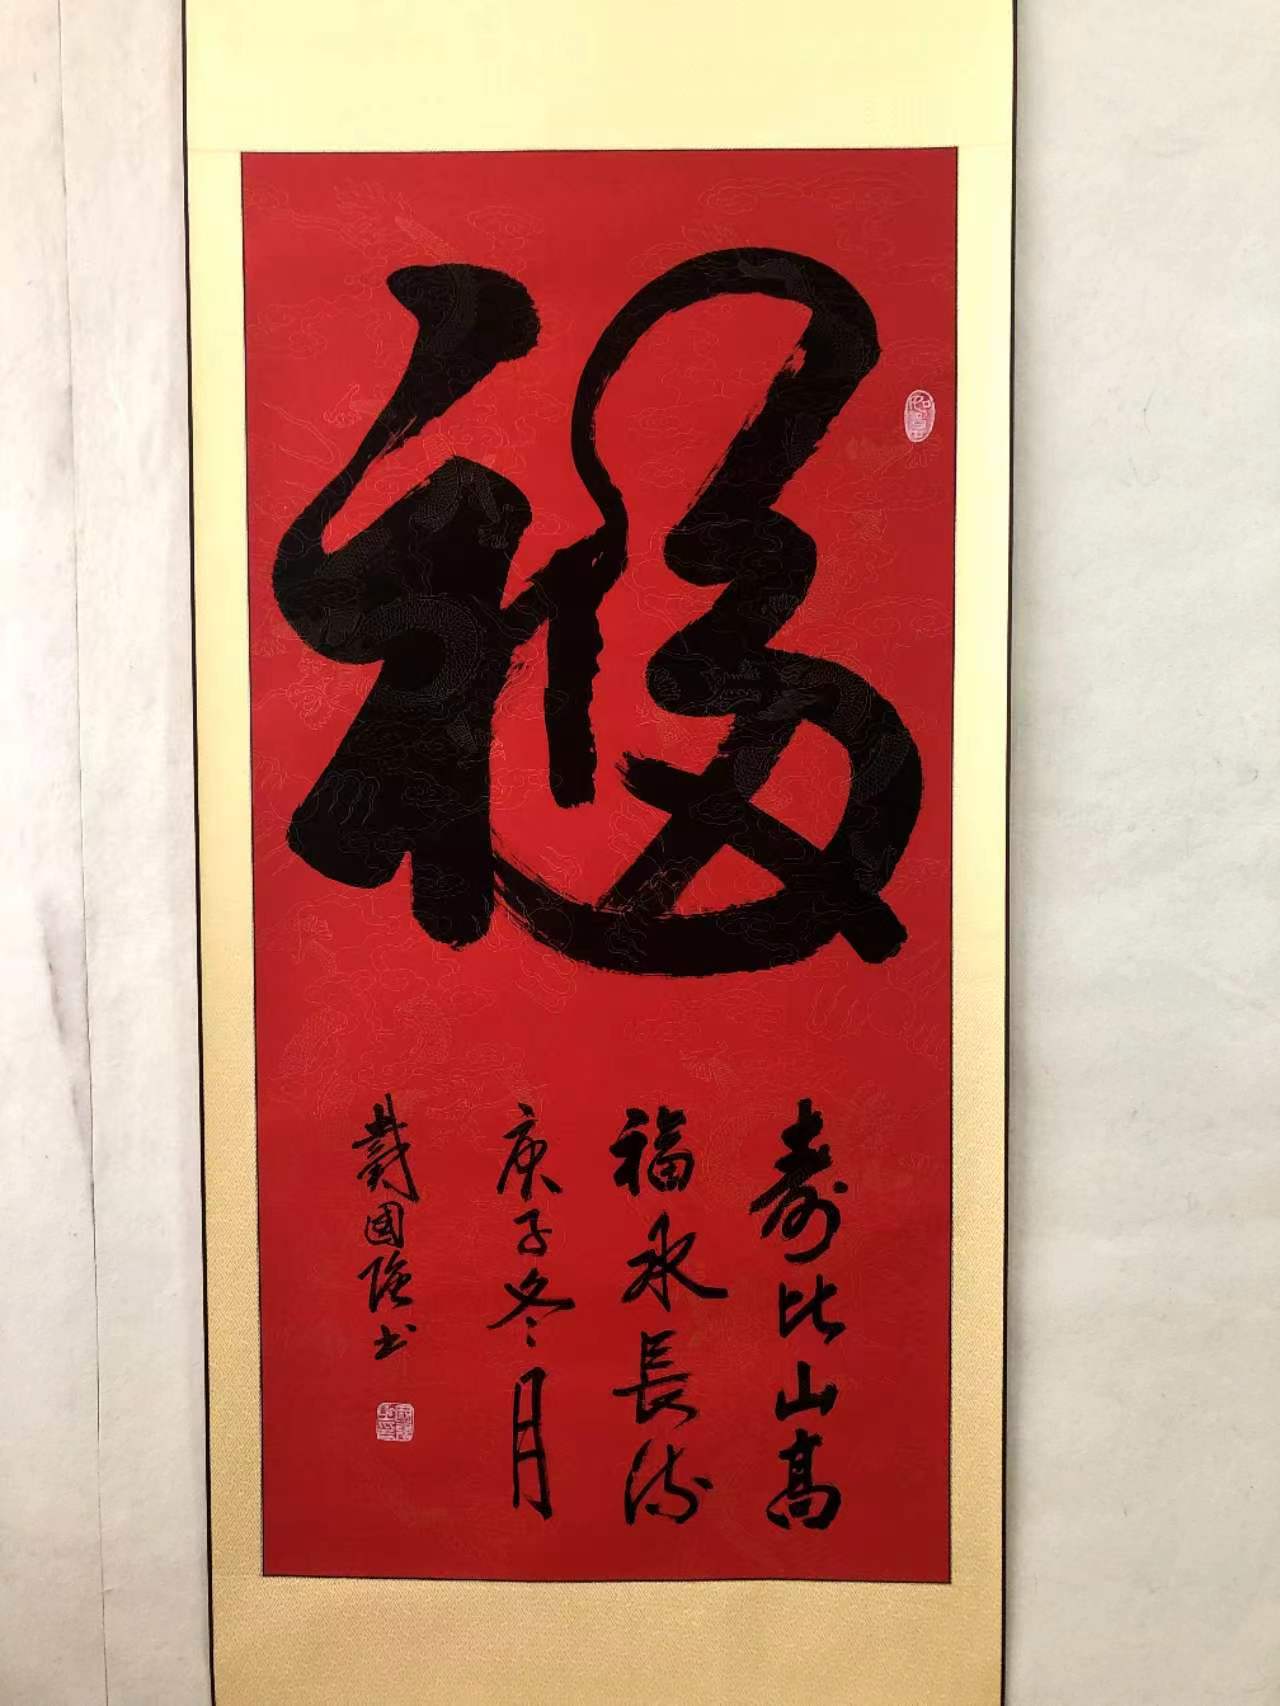 福
壽比山高
福永長流
庚子冬月
戴國強书